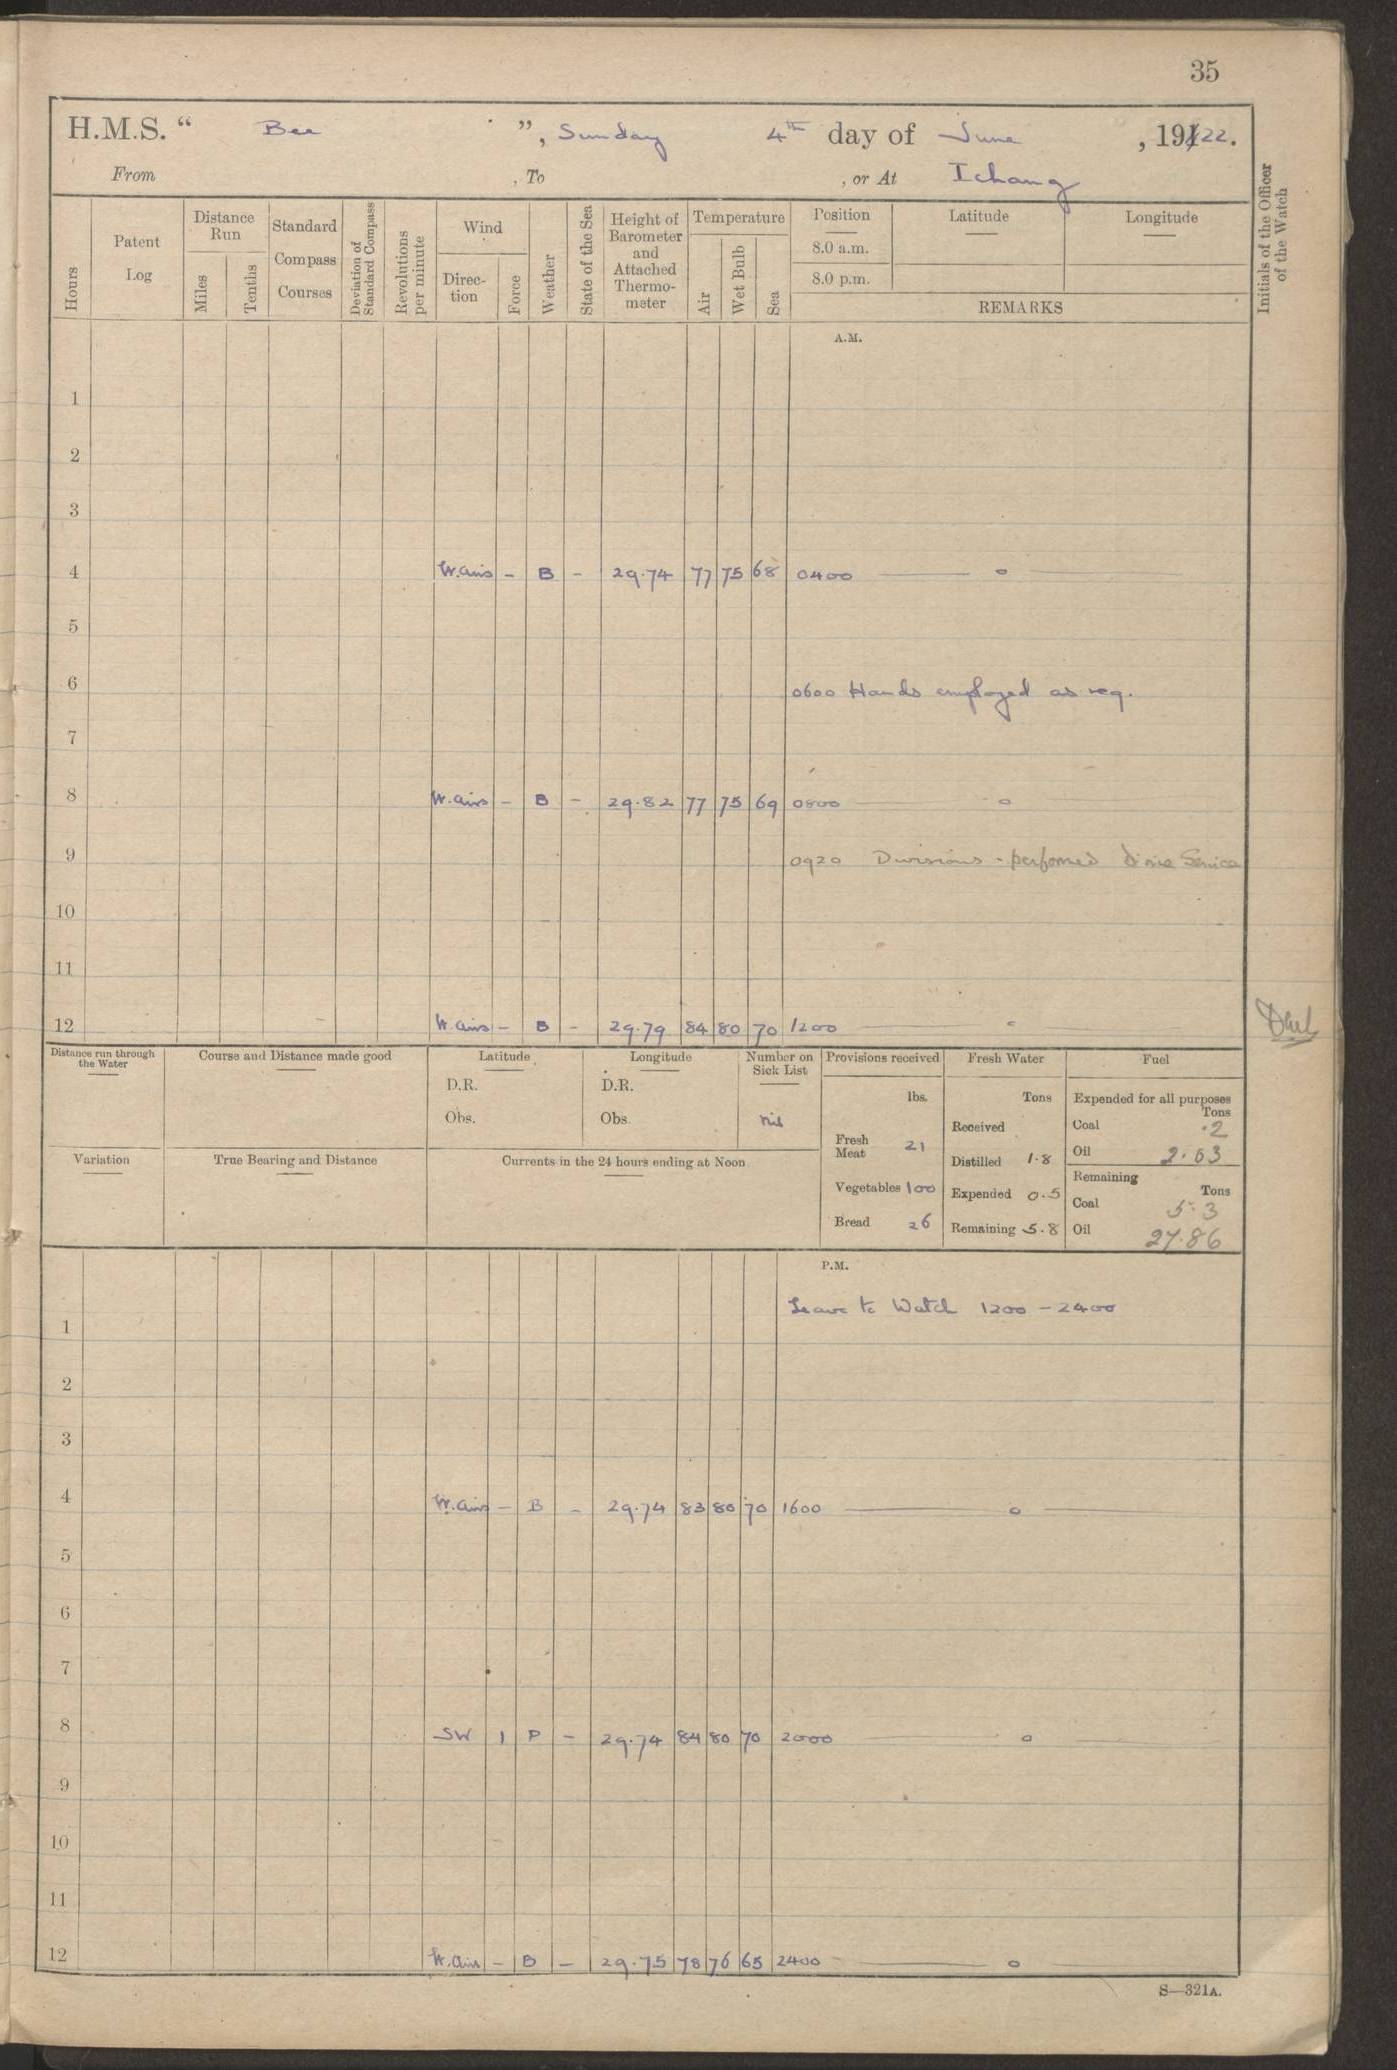 35
H.M.S. “ Bee ”, Sunday 4th day of June , 1922.
From , To , or At Ichang
Hours
Patent Log
Distance Run
Miles
Tenths
Standard Compass Courses
Deviation of Standard Compass
Revolutions per minute
Wind
Direction
Force
Weather
State of the Sea
Height of Barometer and Attached Thermometer
Temperature
Air
Wet Bulb
Sea
Position
8.0 a.m.
8.0 p.m.
Latitude
Longitude
REMARKS
Initials of the Officer of the Watch
A.M.
1
2
3
4 W.airs - B - 29.74 77 75 68 0400 — o —
5
6 0600 Hands employed as req.
7
8 W.airs - B - 29.82 77 75 69 0800 — o
9 0920 Divisions - performed divine Service
10
11
12 W.airs - B - 29.79 84 80 70 1200 — o
Distance run through the Water
Course and Distance made good
Latitude
D.R.
Obs.
Longitude
D.R.
Obs.
Number on Sick List
nil
Variation
True Bearing and Distance
Currents in the 24 hours ending at Noon
Provisions received
lbs.
Fresh Meat 21
Vegetables 100
Bread 26
Fresh Water
Tons
Received
Distilled 1.8
Expended 0.5
Remaining 5.8
Fuel
Expended for all purposes
Tons
Coal .2
Oil 2.03
Remaining
Tons
Coal 5.3
Oil 27.86
P.M.
Leave to Watch 1200 - 2400
1
2
3
4 W.airs - B - 29.74 83 80 70 1600 — o —
5
6
7
8 SW 1 P - 29.74 84 80 70 2000 — o —
9
10
11
12 W.airs - B - 29.75 78 76 65 2400 — o
S—321A.